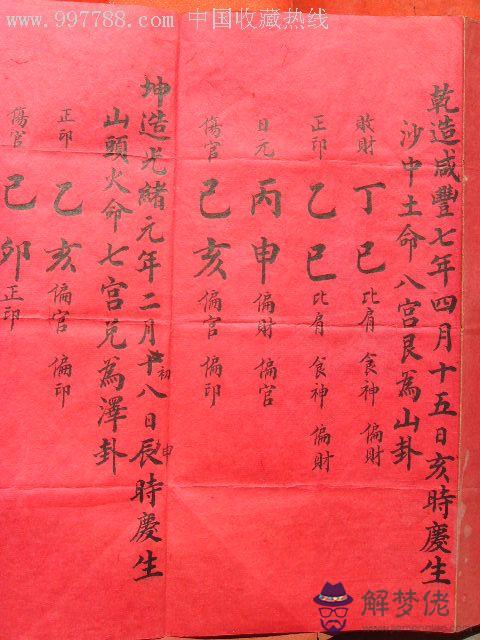 www.997788.com 中国收藏热线
乾造咸豐七年四月十五日亥時慶生
沙中土命八宫艮為山卦
敗財 丁巳 比肩 食神 偏財
正印 乙巳 比肩 食神 偏財
日元 丙申 偏財 偏官
傷官 己亥 偏官 偏印
坤造光緒元年二月十初八日辰申時慶生
山頭火命七宫兑為澤卦
正印 乙亥 偏官 偏印
傷官 己卯 正印
解梦佬